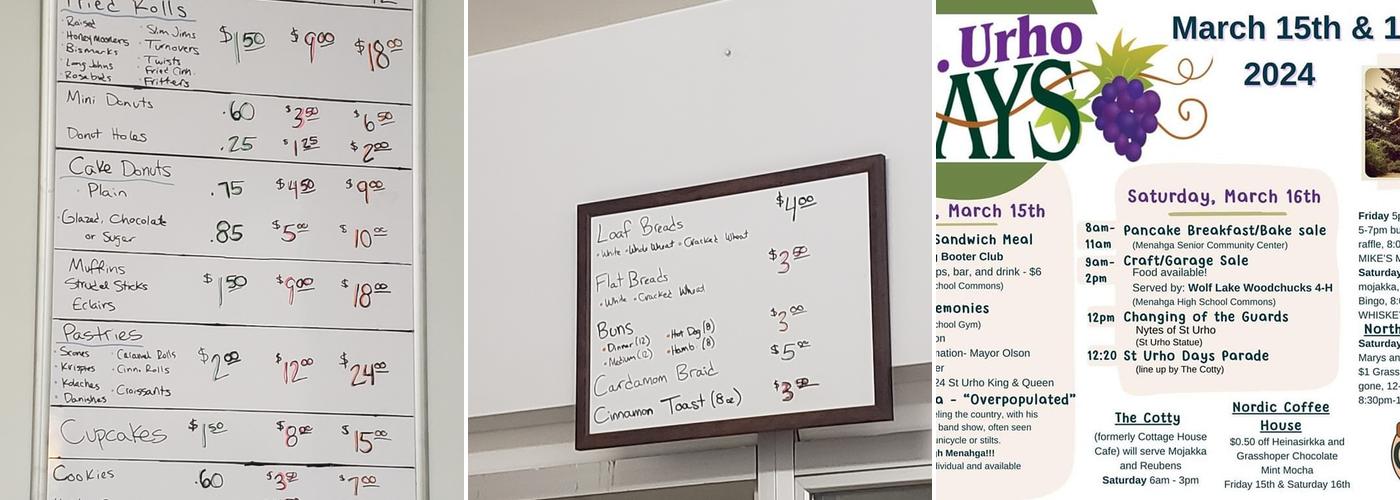 Fried Rolls
· Raised · Slim Jims $1.50 $9.00 $18.00
· Honeymooners · Turnovers
· Bismarks · Twists
· Long Johns · Fried Cinn.
· Rosebuds · Fritters
Mini Donuts .60 $3.50 $6.50
Donut Holes .25 $1.25 $2.00
Cake Donuts
· Plain .75 $4.50 $9.00
· Glazed, Chocolate .85 $5.00 $10.00
or Sugar
Muffins $1.50 $9.00 $18.00
Strudel Sticks
Eclairs
Pastries
· Scones · Caramel Rolls $2.00 $12.00 $24.00
· Krispies · Cinn. Rolls
· Kolaches · Croissants
· Danishes
Cupcakes $1.50 $8.00 $15.00
Cookies .60 $3.50 $7.00
Loaf Breads $4.00
· White · Whole Wheat · Cracked Wheat
Flat Breads $3.50
· White · Cracked Wheat
Buns $3.00
· Dinner (12) · Hot Dog (8)
· Medium (12) · Hamb. (8)
Cardamom Braid $5.00
Cinnamon Toast (8oz)
. Urho
AYS
March 15th & 1
2024
, March 15th
Sandwich Meal
g Booter Club
ps, bar, and drink - $6
chool Commons)
emonies
chool Gym)
on
mation- Mayor Olson
er
24 St Urho King & Queen
a - “Overpopulated”
eling the country, with his
band show, often seen
unicycle or stilts.
gh Menahga!!!
dividual and available
Saturday, March 16th
8am-11am Pancake Breakfast/Bake sale
(Menahga Senior Community Center)
9am-2pm Craft/Garage Sale
Food available!
Served by: Wolf Lake Woodchucks 4-H
(Menahga High School Commons)
12pm Changing of the Guards
Nytes of St Urho
(St Urho Statue)
12:20 St Urho Days Parade
(line up by The Cotty)
The Cotty
(formerly Cottage House
Cafe) will serve Mojakka
and Reubens
Saturday 6am - 3pm
Nordic Coffee
House
$0.50 off Heinasirkka and
Grasshoper Chocolate
Mint Mocha
Friday 15th & Saturday 16th
Friday 5p
5-7pm bu
raffle, 8:0
MIKE'S M
Saturday
mojakka,
Bingo, 8:0
WHISKE
North
Saturday
Marys an
$1 Grass
gone, 12-
8:30pm-1